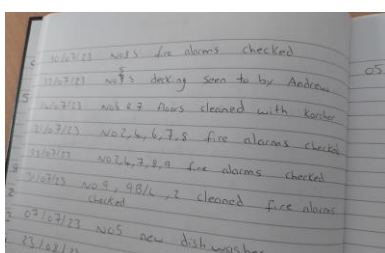 10/07/23 No8's fire alarms checked
12/07/23 No 5's decking seen to by Andrew
/07/23 No6 & 7 floors cleaned with Karcher
21/07/23 No2, 6, 7, 8 fire alarms checked
No2 6, 7, 8, 9 fire alarms checked
31/07/23 No9, 9B/L, 2 cleaned fire alarms
checked
07/07/23 No5 new dishwasher
23/08/
05